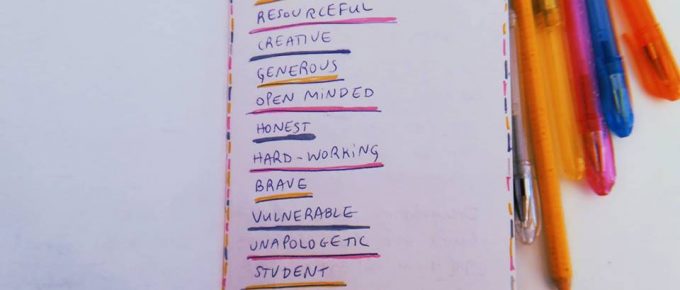 RESOURCEFUL
CREATIVE
GENEROUS
OPEN MINDED
HONEST
HARD-WORKING
BRAVE
VULNERABLE
UNAPOLOGETIC
STUDENT